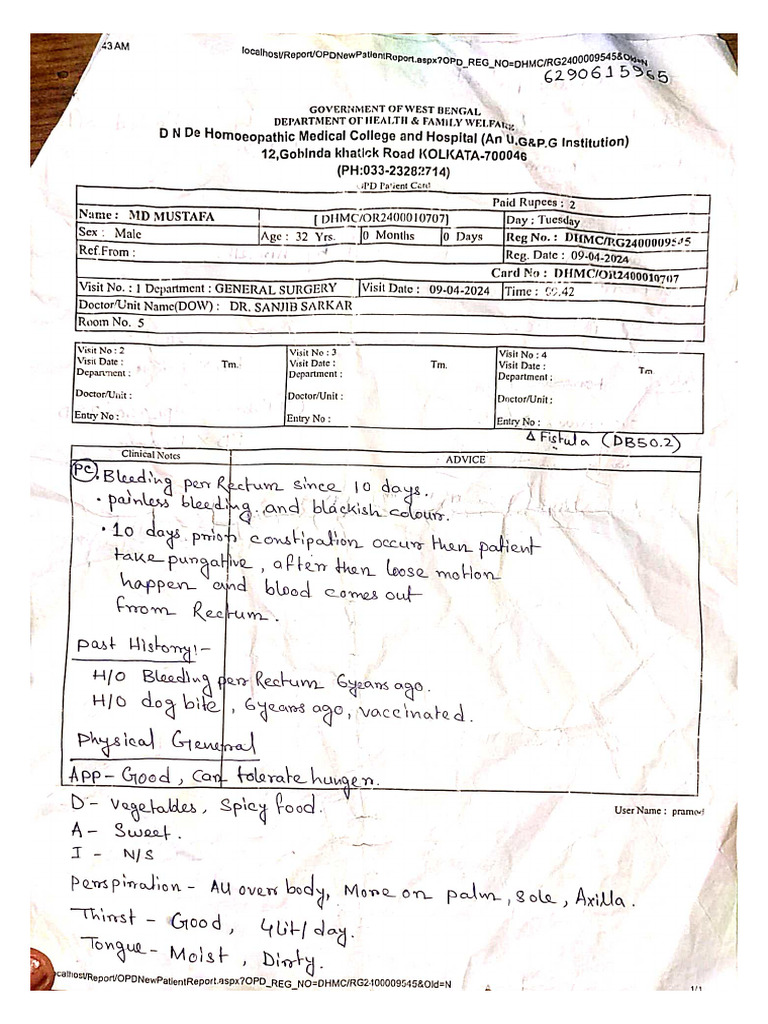 43 AM
localhost/Report/OPDNewPatientReport.aspx?OPD_REG_NO=DHMC/RG2400009545&Old=N
6290615965
GOVERNMENT OF WEST BENGAL
DEPARTMENT OF HEALTH & FAMILY WELFARE
D N De Homoeopathic Medical College and Hospital (An U.G&P.G Institution)
12,Gobinda khatick Road KOLKATA-700046
(PH:033-23282714)
OPD Patient Card
Paid Rupees : 2
Name : MD MUSTAFA [ DHMC/OR2400010707] Day : Tuesday
Sex : Male Age : 32 Yrs. 0 Months 0 Days Reg No. : DHMC/RG2400009545
Ref.From : Reg. Date : 09-04-2024
Card No : DHMC/OR2400010707
Visit No. : 1 Department : GENERAL SURGERY Visit Date : 09-04-2024 Time : 09.42
Doctor/Unit Name(DOW) : DR. SANJIB SARKAR
Room No. 5
Visit No : 2 Visit No : 3 Visit No : 4
Visit Date : Tm. Visit Date : Tm. Visit Date : Tm
Department : Department : Department :
Doctor/Unit : Doctor/Unit : Doctor/Unit :
Entry No : Entry No : Entry No :
Δ Fistula (DB50.2)
Clinical Notes ADVICE
PC • Bleeding per Rectum since 10 days.
• painless bleeding and blackish colour.
• 10 days prior constipation occurs then patient
take pungative, after then loose motion
happen and blood comes out
from Rectum.
Past History:-
H/O Bleeding per Rectum 6years ago.
H/O dog bite, 6years ago, vaccinated.
Physical General
APP - Good, can tolerate hunger.
D - Vegetables, Spicy food.
User Name : pramod
A - Sweet.
I - N/S
Perspiration - All over body, More on palm, sole, Axilla.
Thirst - Good, 4lit/day.
Tongue - Moist, Dirty.
ocalhost/Report/OPDNewPatientReport.aspx?OPD_REG_NO=DHMC/RG2400009545&Old=N
1/1